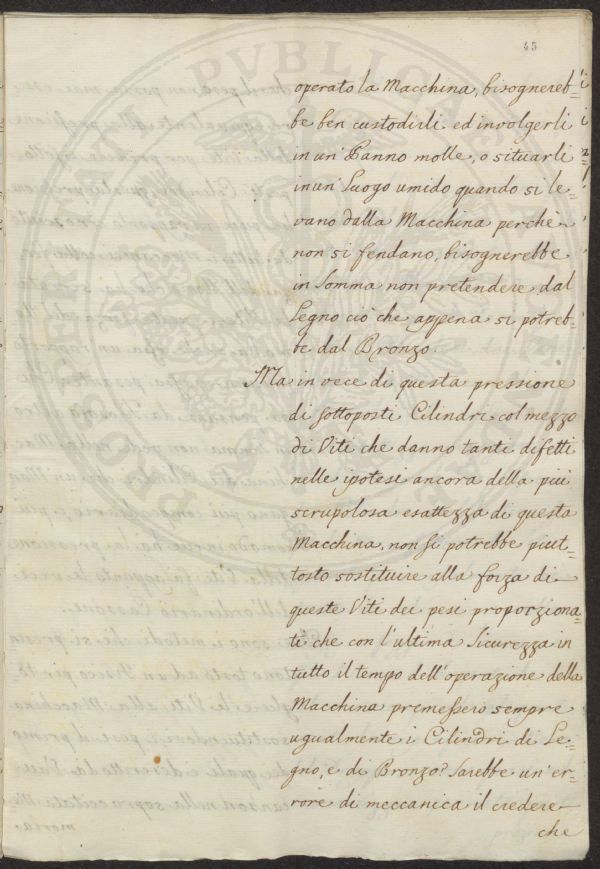 45
operato la Macchina, bisognereb=
be ben custodirli ed involgerli
in un' Panno molle, o situarli
in un' Luogo umido quando si le=
vano dalla Macchina perchè
non si fendano, bisognerebbe
in somma non pretendere dal
Legno ciò che appena si potreb=
be dal Bronzo.
Ma in vece di questa pressione
di sottoposti Cilindri col mezzo
di Viti che danno tanti difetti
nelle ipotesi ancora della più
scrupolosa esattezza di questa
Macchina, non si potrebbe piut=
tosto sostituire alla forza di
queste Viti dei pesi proporziona=
ti che con l'ultima sicurezza in
tutto il tempo dell'operazione della
Macchina premessero sempre
ugualmente i Cilindri di Le=
gno, e di Bronzo? Sarebbe un'er=
rore di meccanica il credere
che